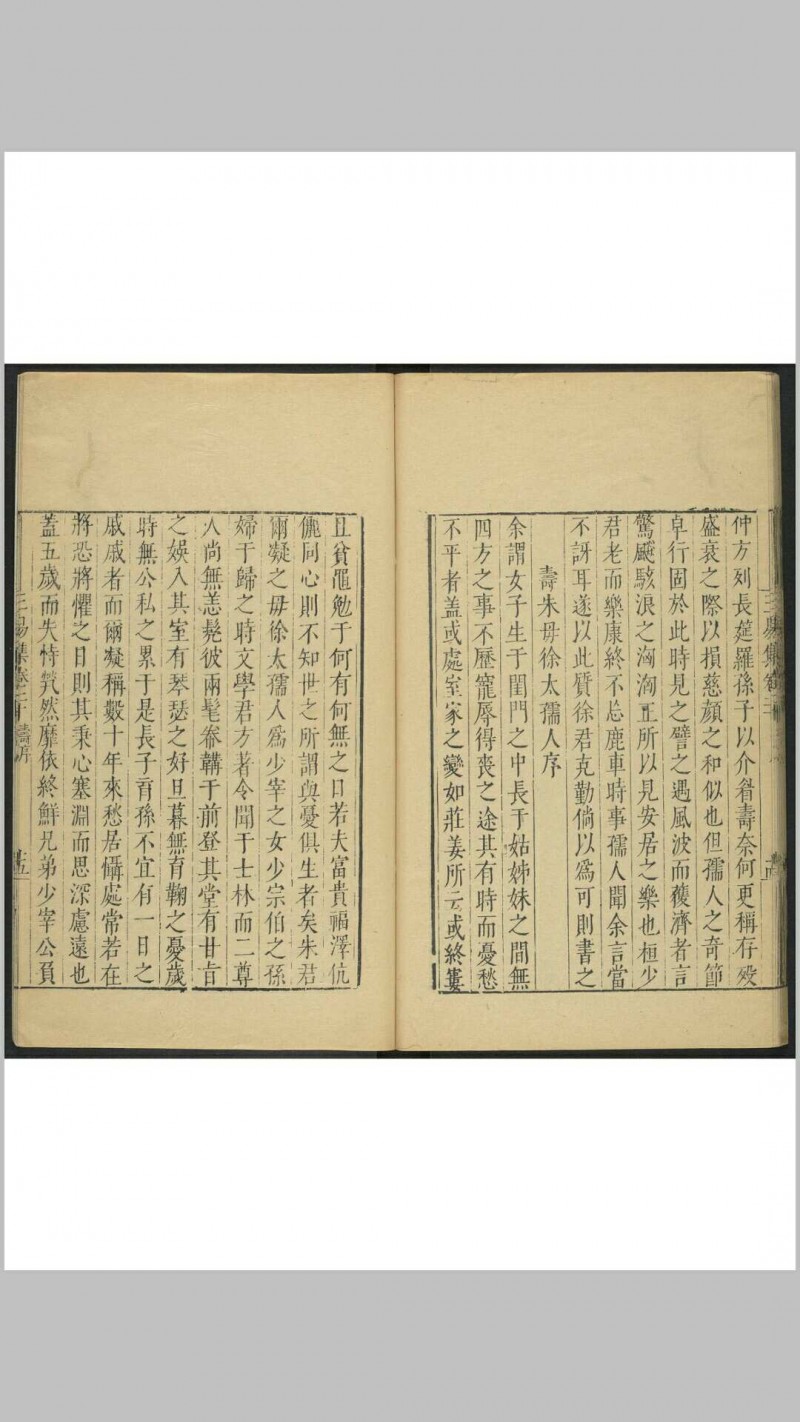 仲方列長筵羅孫子以介眉壽奈何更稱存歿
盛衰之際以損慈顏之和似也但孺人之奇節
卓行固於此時見之譬之遇風波而獲濟者言
驚飈駭浪之洶洶正所以見安居之樂也桓少
君老而樂康終不忘鹿車時事孺人聞余言當
不訝耳遂以此質徐君克勤倘以爲可則書之
壽朱母徐太孺人序
余謂女子生于閨門之中長于姑姊妹之間無
四方之事不歷寵辱得喪之途其有時而憂愁
不平者蓋或處室家之變如莊姜所云或終窶
且貧黽勉于何有何無之日若夫富貴福澤伉
儷同心則不知世之所謂與憂俱生者矣朱君
爾凝之母徐太孺人爲少宰之女少宗伯之孫
婦于歸之時文學君方著令聞于士林而二尊
人尚無恙髧彼兩髦帣韝于前登其堂有甘旨
之娛入其室有琴瑟之好旦暮無育鞠之憂歲
時無公私之累于是長子育孫不宜有一日之
戚戚者而爾凝稱數十年來愁居懾處常若在
將恐將懼之日則其秉心塞淵而思深慮遠也
蓋五歲而失恃煢然靡依終鮮兄弟少宰公負
三易集卷二十 壽序 十五